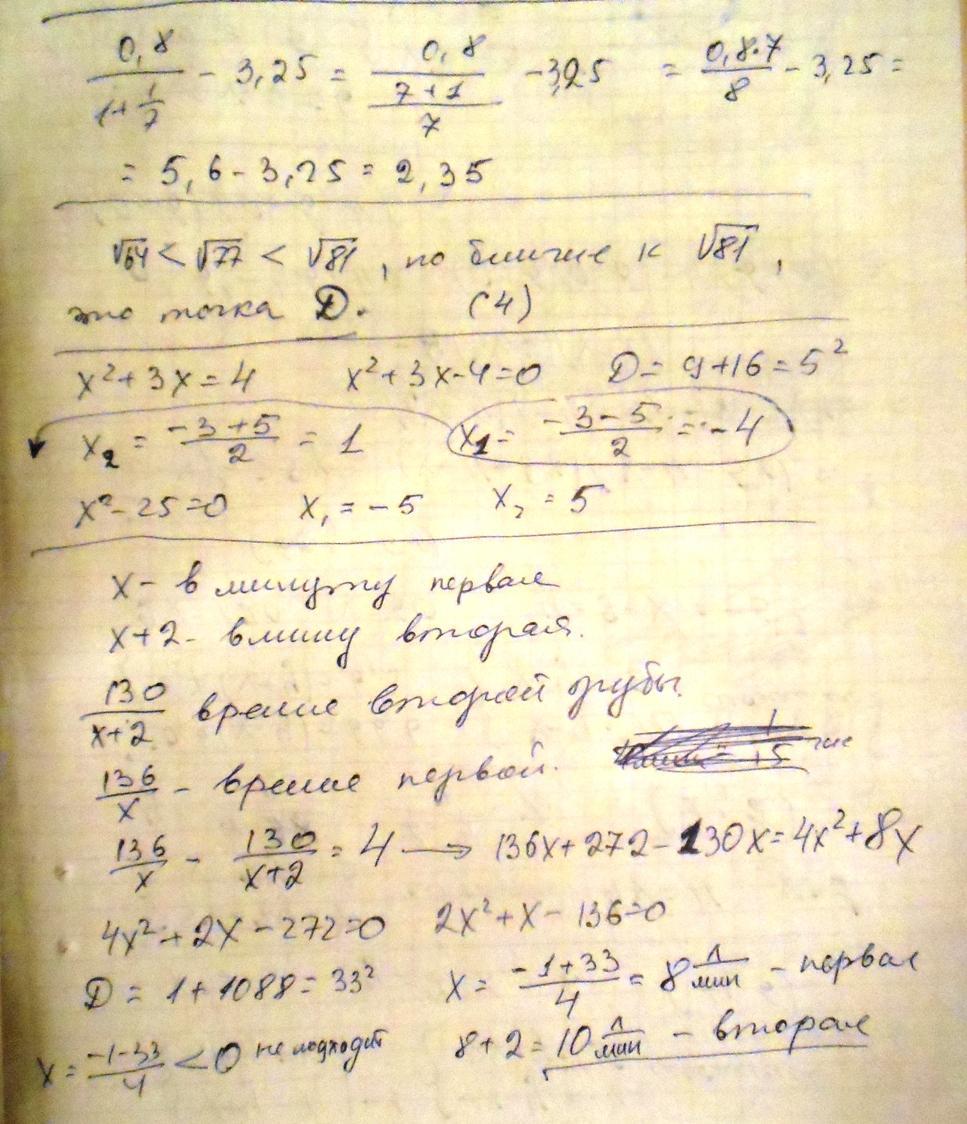 0,8/(1+1/7) - 3,25 = 0,8/((7+1)/7) - 3,25 = 0,8·7/8 - 3,25 =
= 5,6 - 3,25 = 2,35
√64 < √77 < √81, но ближе к √81,
это точка D. (4)
x²+3x=4 x²+3x-4=0 D= 9+16=5²
x₂ = (-3+5)/2 = 1 x₁ = (-3-5)/2 = -4
x²-25=0 x₁=-5 x₂=5
x- в минуту первая
x+2- в мину вторая.
130/(x+2) время второй трубы.
136/x - время первой.
136/x - 130/(x+2) = 4 → 136x+272-130x=4x²+8x
4x²+2x-272=0 2x²+x-136=0
D = 1+1088=33² x = (-1+33)/4 = 8 л/мин - первая
x = (-1-33)/4 < 0 не подходит 8+2=10 л/мин - вторая